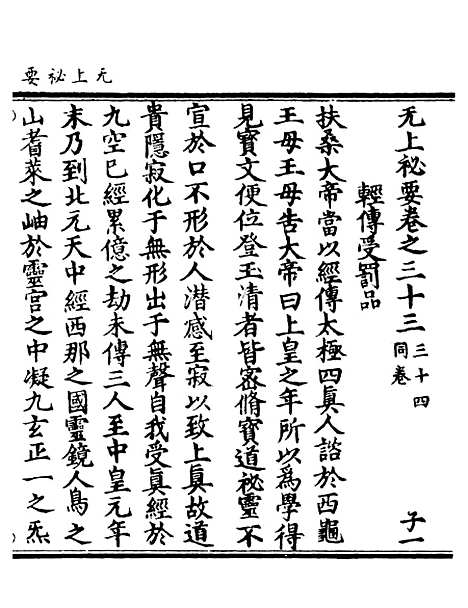 无上祕要
无上祕要卷之三十三 三十四同卷 子一
輕傳受罰品
扶桑大帝當以經傳太極四真人諮於西龜
王母王母告大帝曰上皇之年所以爲學得
見寶文便位登玉清者皆宻脩寶道祕靈不
宣於口不形於人潜感至寂以致上真故道
貴隱寂化于無形出于無聲自我受真經於
九空巳經累億之劫未傳三人至中皇元年
末乃到北元天中經西那之國靈鏡人鳥之
山耆萊之岫於靈宫之中凝九玄正一之炁